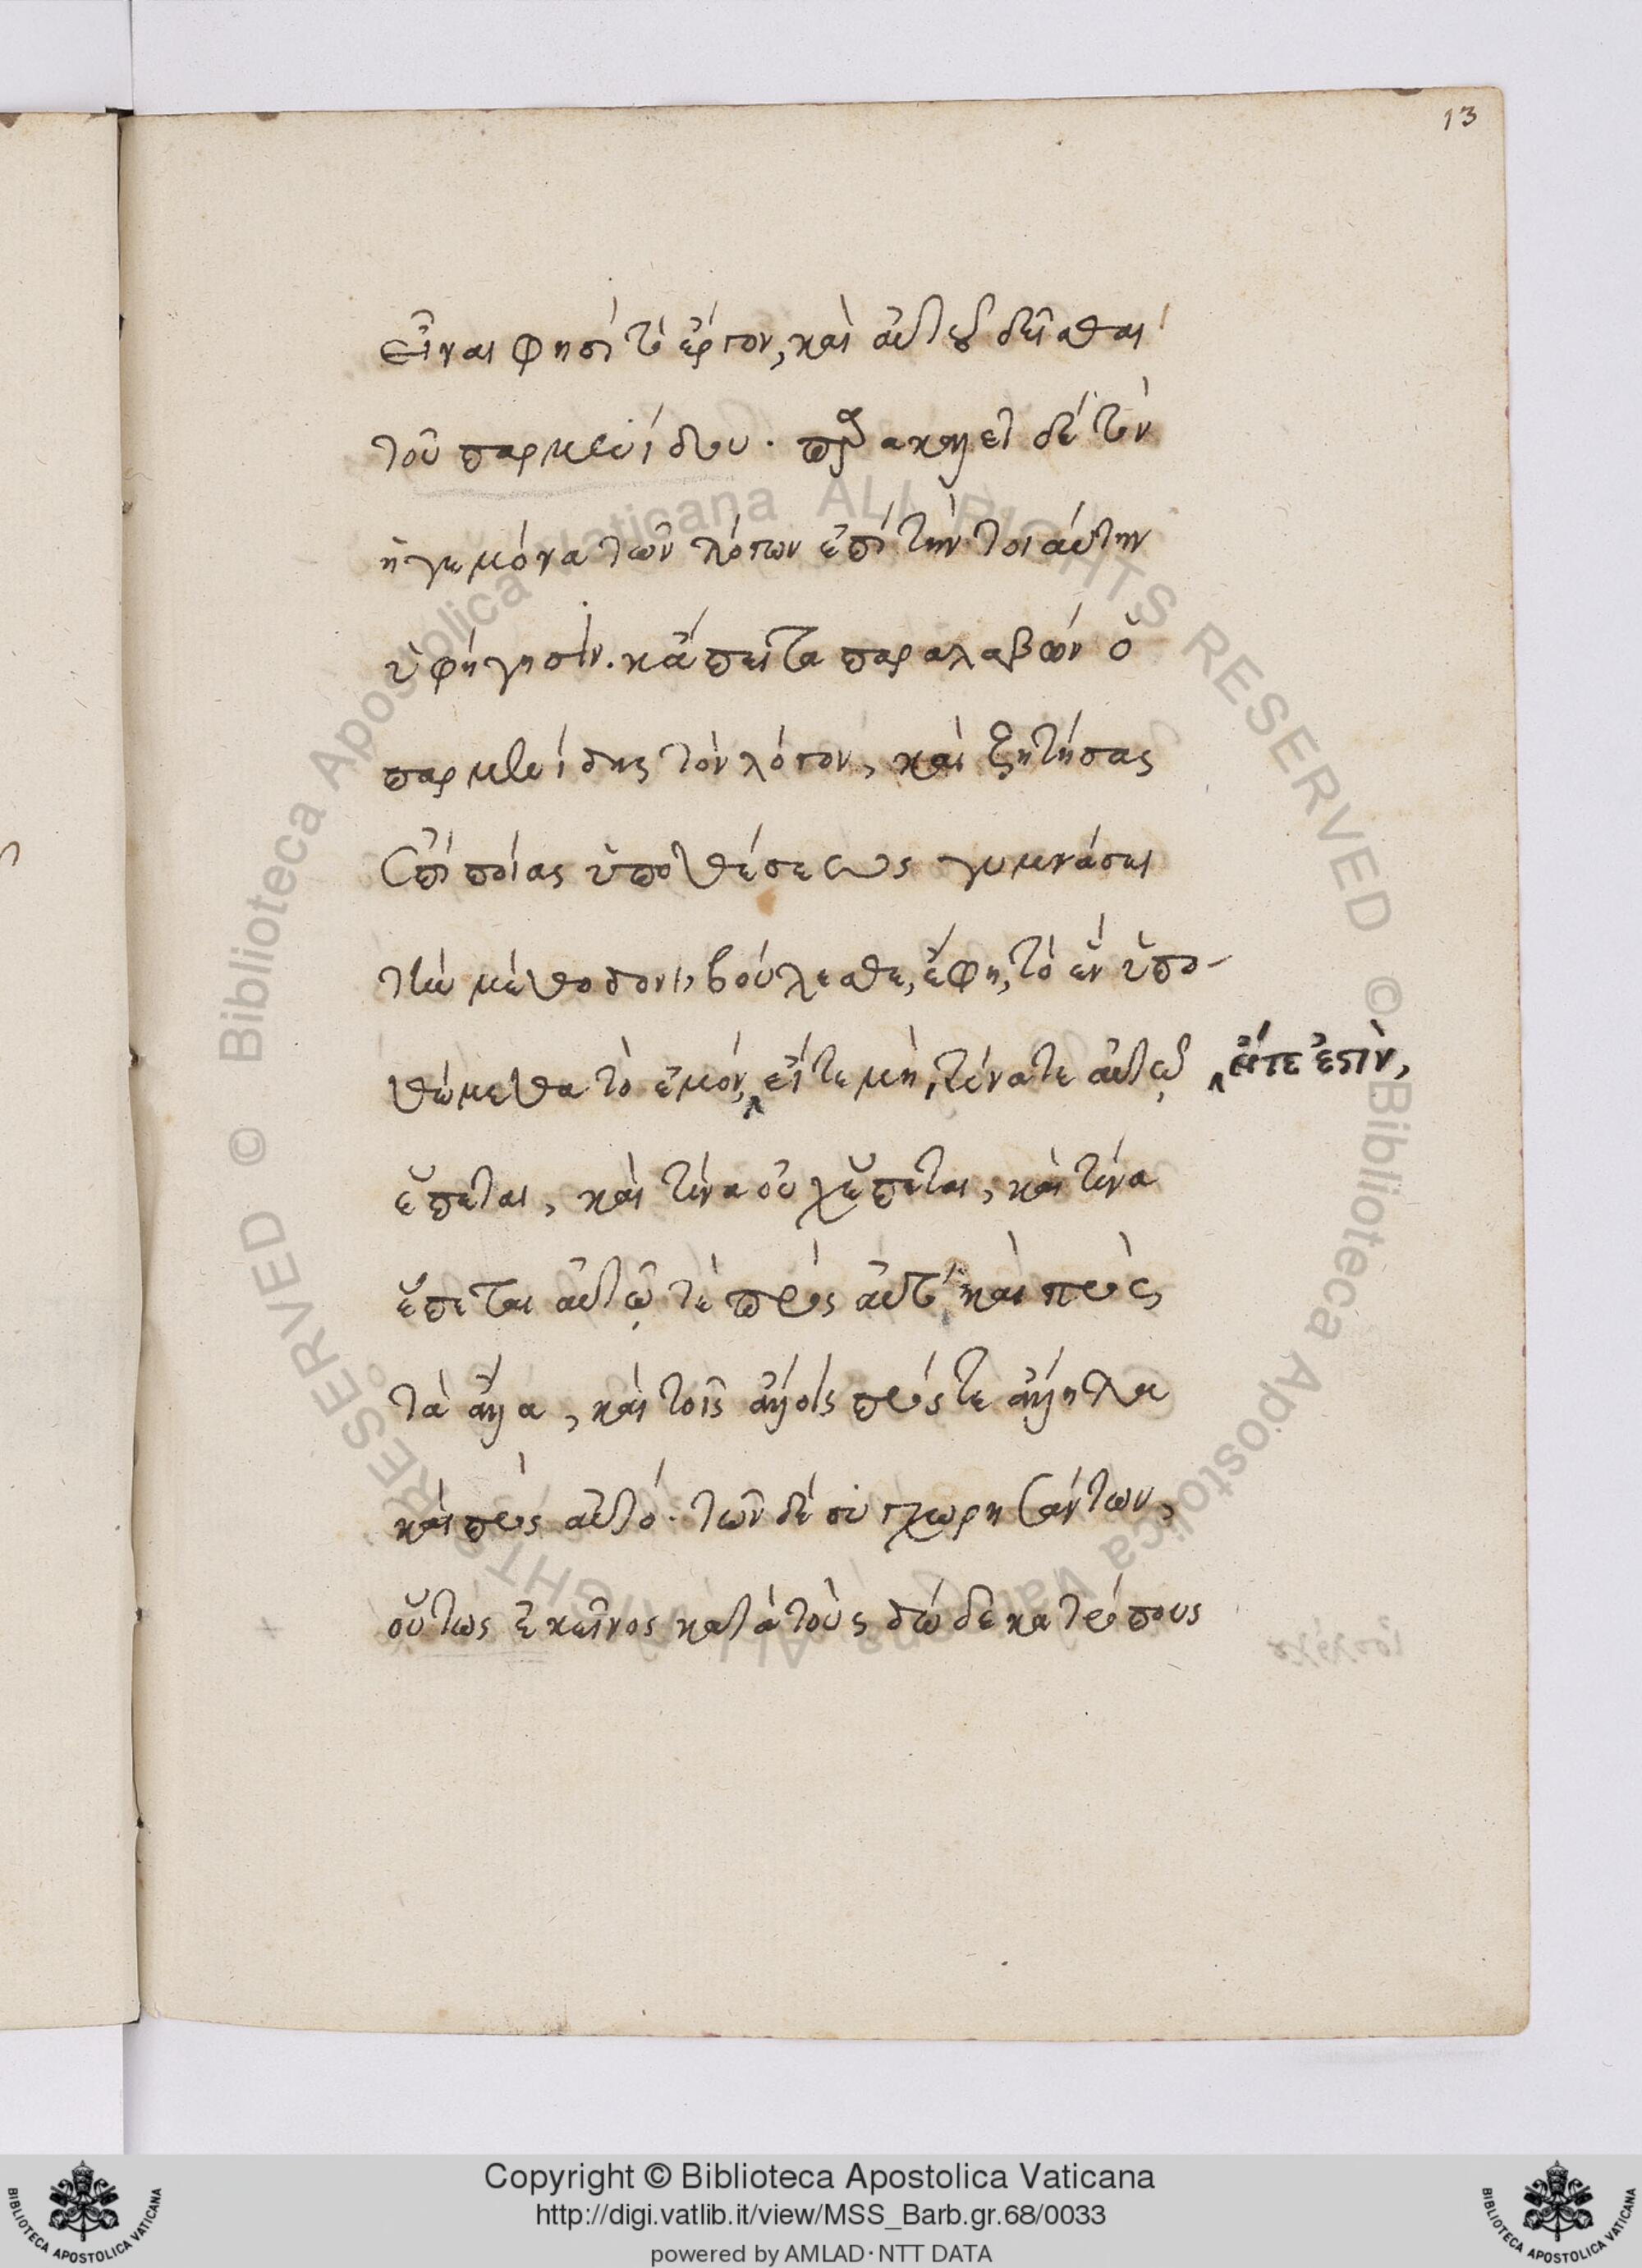 13
εἶναι φησὶ τὸ ἔργον, καὶ αὐτοῦ δεῖσθαι
τοῦ παρμενίδου. παρακαλεῖ δὲ τὸν
ἡγεμόνα τῶν λόγων ἐπὶ τὴν τοιαύτην
ὑφήγησιν. κἄπειτα παραλαβὼν ὁ
παρμενίδης τὸν λόγον, καὶ ζητήσας
ἐπὶ ποίας ὑποθέσεως γυμνάσει
τὴν μέθοδον, βούλεσθε, ἔφη, τὸ ἓν ὑπο-
θώμεθα τὸ ἐμόν, εἴτε μὴ, τίνα τε αὐτῷ
εἴτε ἐστὶν,
ἕπεται, καὶ τίνα οὐχ ἕπεται, καὶ τίνα
ἕπεται αὐτῷ τὲ πρὸς αὐτὸ, καὶ πρὸς
τὰ ἄλλα, καὶ τοῖς ἄλλοις πρός τε ἄλληλα
καὶ πρὸς αὐτό. τῶν δὲ συγχωρησάντων,
οὕτως ἐκεῖνος κατὰ τοὺς δώδεκα τρόπους
Copyright © Biblioteca Apostolica Vaticana
http://digi.vatlib.it/view/MSS_Barb.gr.68/0033
powered by AMLAD·NTT DATA
BIBLIOTECA APOSTOLICA VATICANA
BIBLIOTECA APOSTOLICA VATICANA
© Biblioteca Apostolica Vaticana ALL RIGHTS RESERVED
© Biblioteca Apostolica Vaticana ALL RIGHTS RESERVED